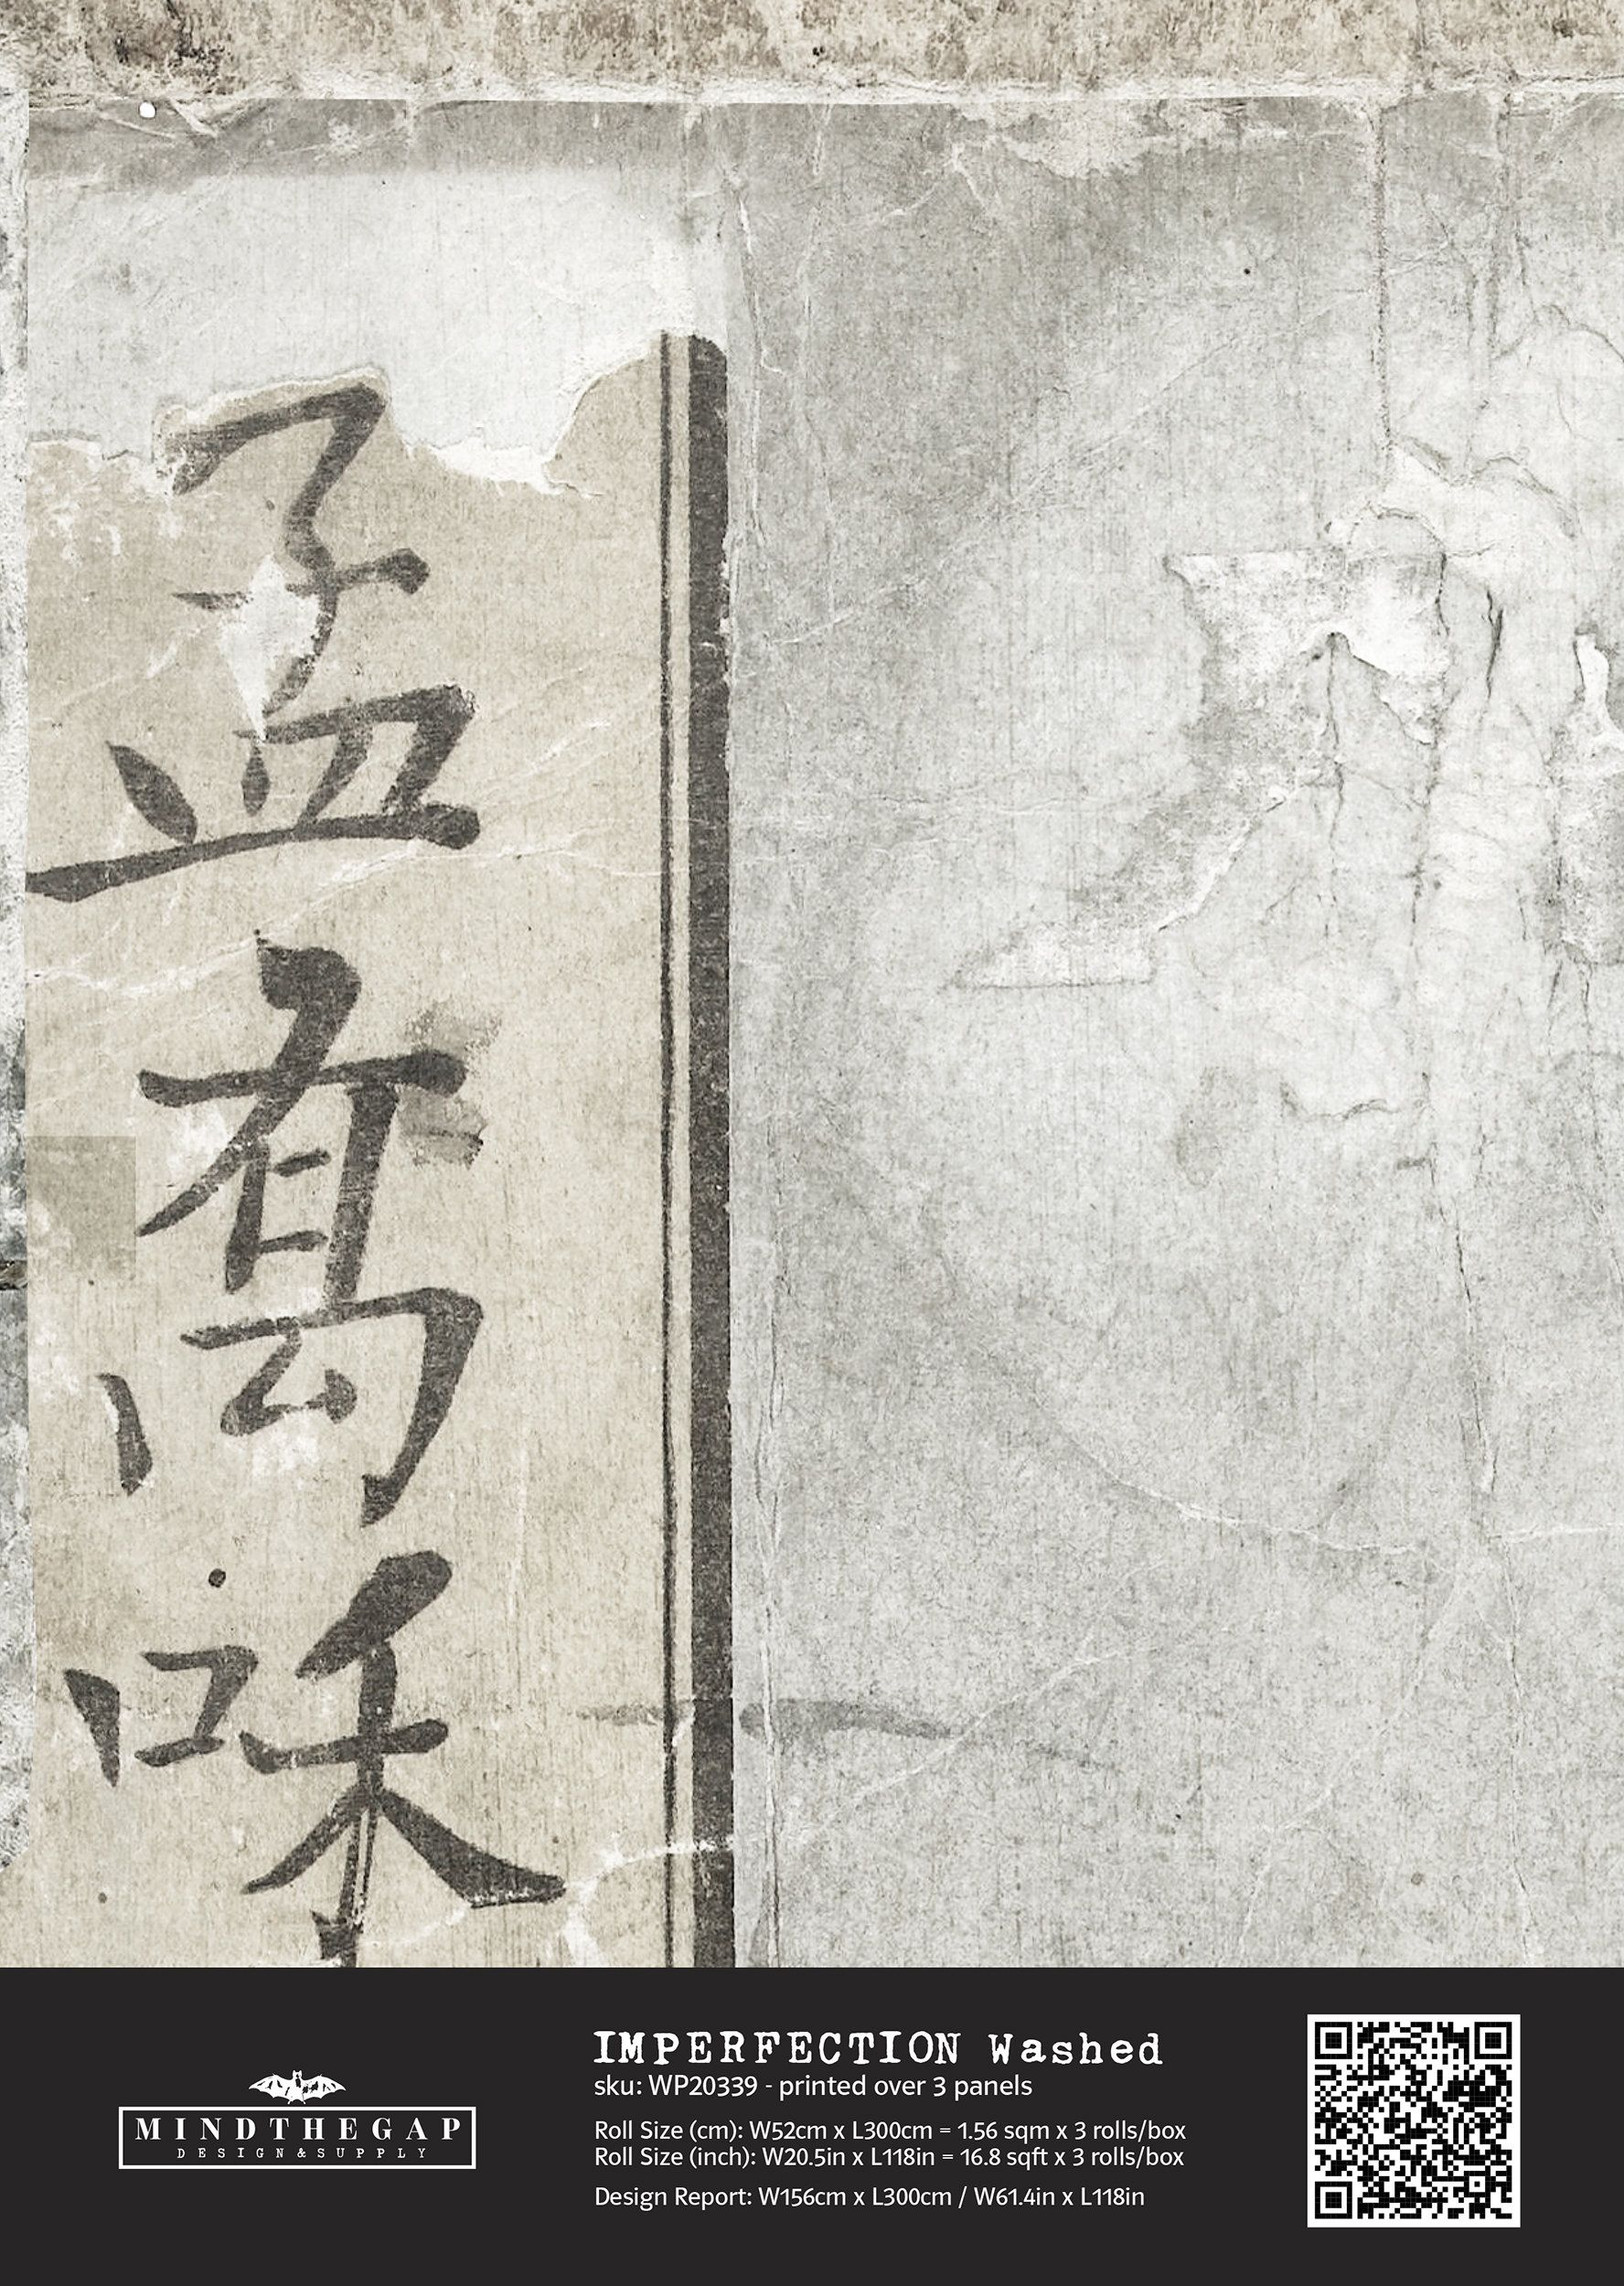 孟
萬
味
IMPERFECTION Washed
sku: WP20339 - printed over 3 panels
Roll Size (cm): W52cm x L300cm = 1.56 sqm x 3 rolls/box
Roll Size (inch): W20.5in x L118in = 16.8 sqft x 3 rolls/box
Design Report: W156cm x L300cm / W61.4in x L118in
MINDTHEGAP
DESIGN & SUPPLY